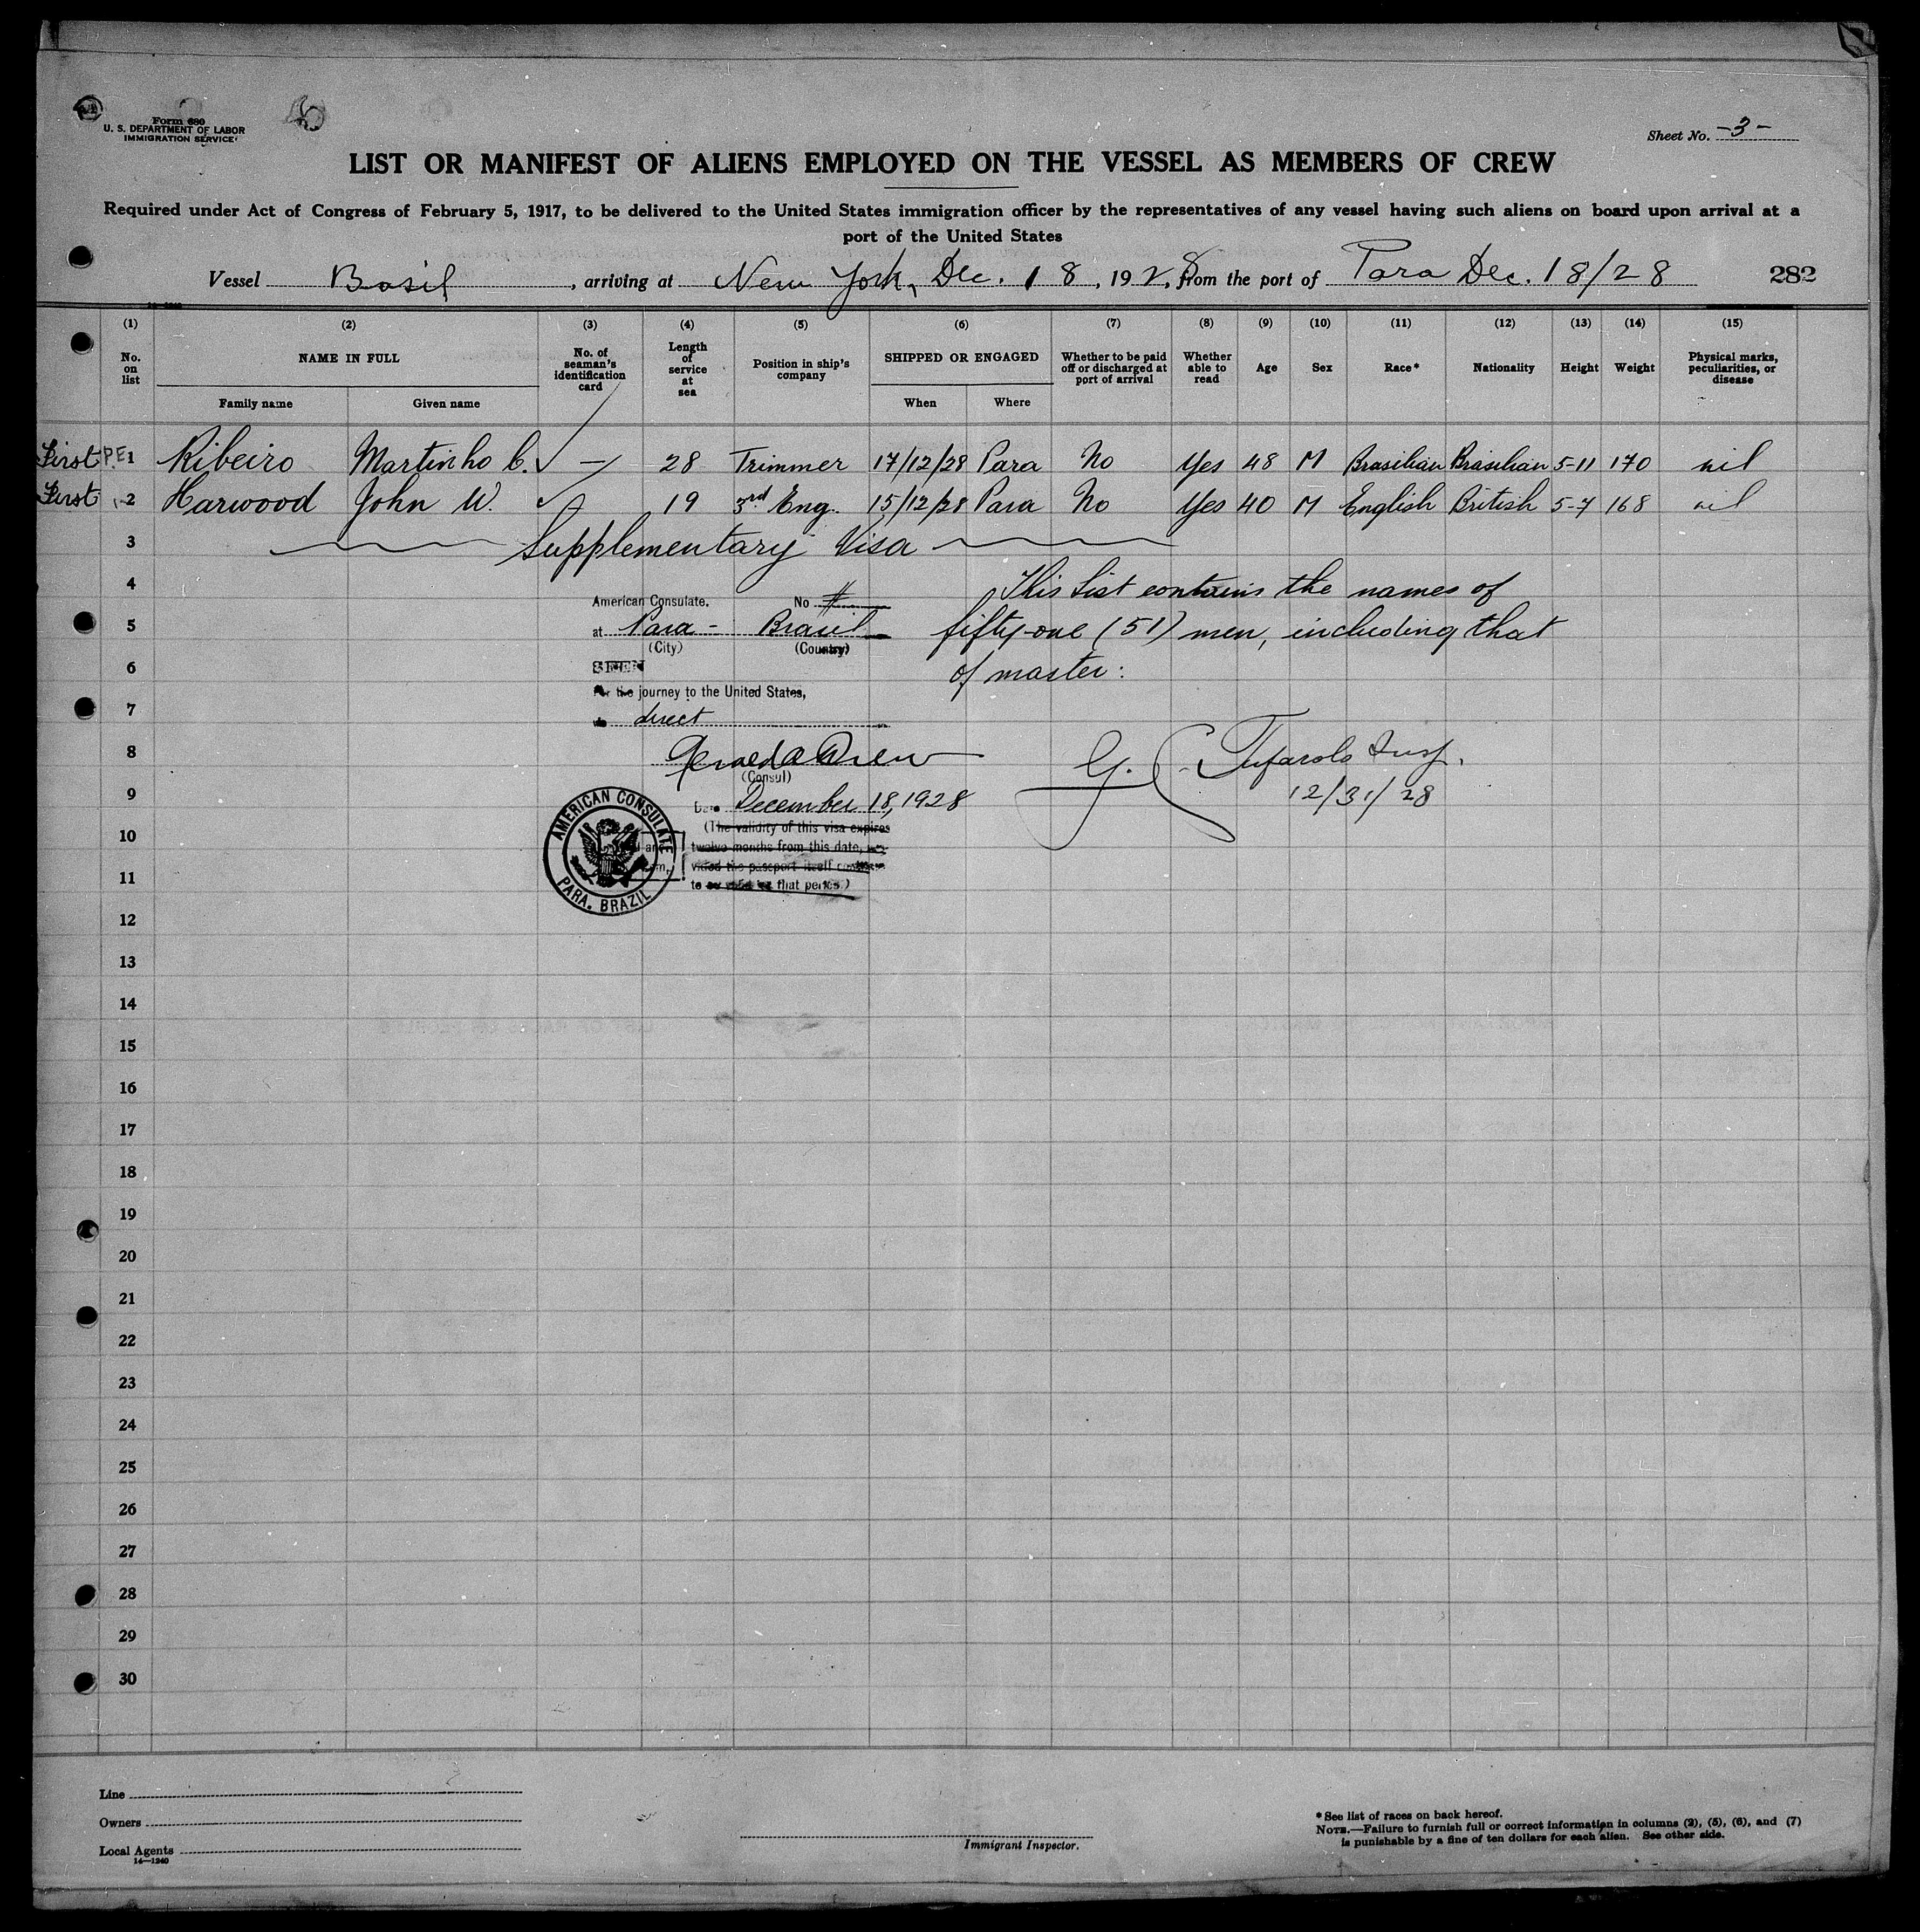 Form 680
U. S. DEPARTMENT OF LABOR
IMMIGRATION SERVICE
Sheet No. -3-
LIST OR MANIFEST OF ALIENS EMPLOYED ON THE VESSEL AS MEMBERS OF CREW
Required under Act of Congress of February 5, 1917, to be delivered to the United States immigration officer by the representatives of any vessel having such aliens on board upon arrival at a
port of the United States
Vessel Basil, arriving at New York, Dec. 18, 1928, from the port of Para Dec. 18/28 282
(1) (2) (3) (4) (5) (6) (7) (8) (9) (10) (11) (12) (13) (14) (15)
No. on list NAME IN FULL No. of seaman's identification card Length of service at sea Position in ship's company SHIPPED OR ENGAGED Whether to be paid off or discharged at port of arrival Whether able to read Age Sex Race* Nationality Height Weight Physical marks, peculiarities, or disease
Family name Given name When Where
First P.E. 1 Ribeiro Martinho C. ✓ — 28 Trimmer 17/12/28 Para No Yes 48 M Brasilian Brasilian 5-11 170 nil
First 2 Harwood John W. ✓ 19 3rd Eng. 15/12/28 Para No Yes 40 M English British 5-7 168 nil
3 Supplementary Visa
4 This List contains the names of
American Consulate, No #
5 at Para - Brasil fifty-one (51) men, including that
(City) (Country)
6 SEEN of master:
For the journey to the United States,
7 direct
8 Gerald A Drew G. C. Tufarolo Insp.
(Consul)
9 Date December 18, 1928 12/31/28
10 (The validity of this visa expires
twelve months from this date, pro-
11 vided the passport itself continues
to be valid for that period.)
AMERICAN CONSULATE
PARA, BRAZIL
12
13
14
15
16
17
18
19
20
21
22
23
24
25
26
27
28
29
30
Line
Owners
Local Agents
14—1240
Immigrant Inspector.
*See list of races on back hereof.
NOTE.—Failure to furnish full or correct information in columns (2), (5), (6), and (7)
is punishable by a fine of ten dollars for each alien. See other side.